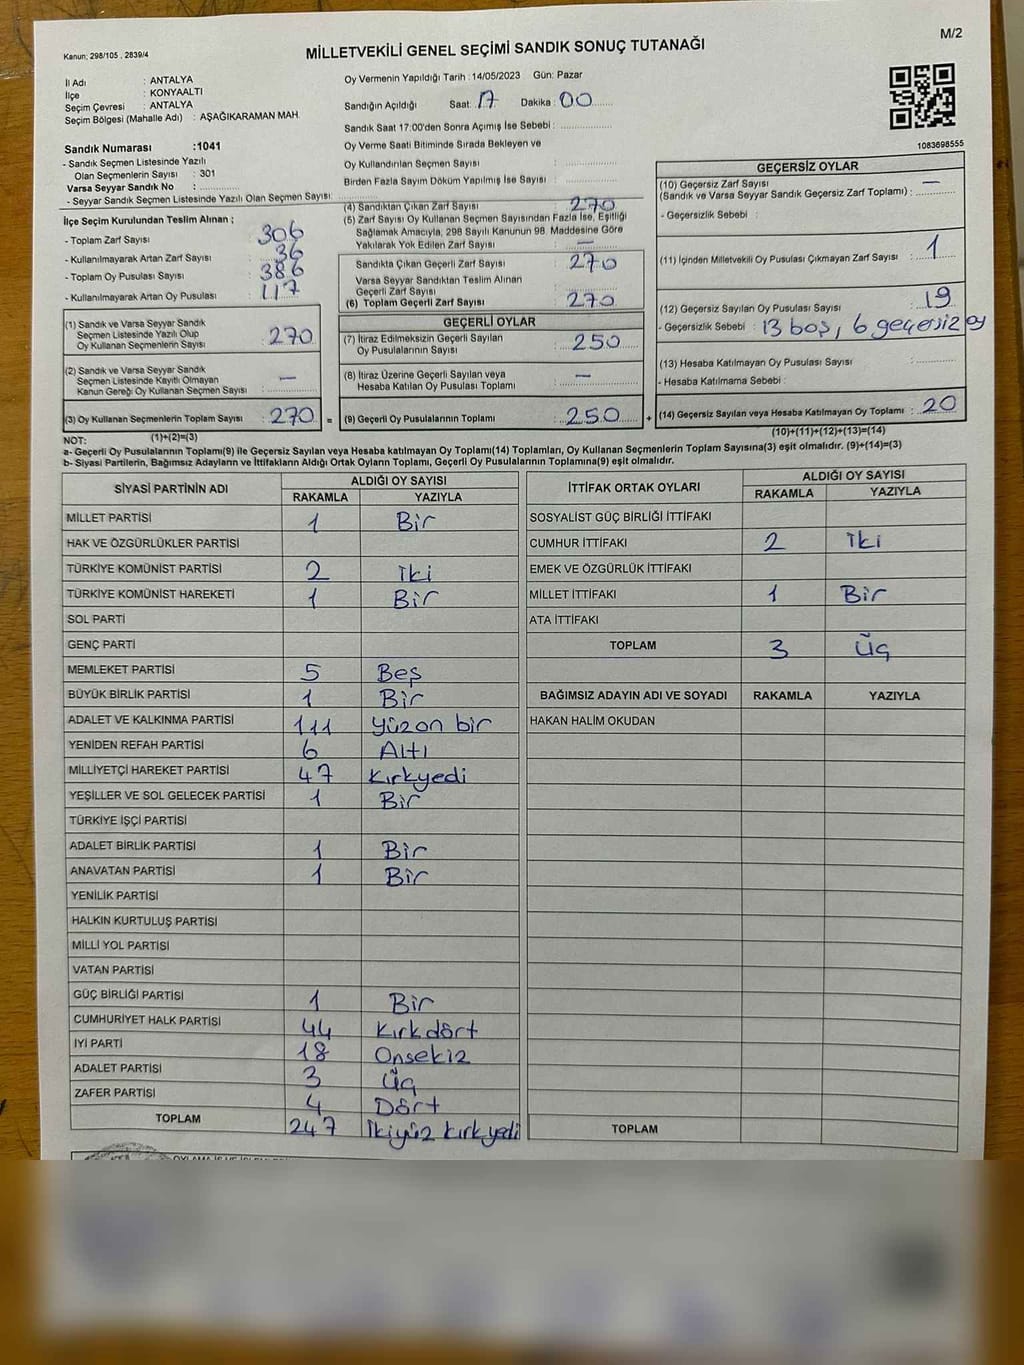 M/2
Kanun; 298/105 , 2839/4
MİLLETVEKİLİ GENEL SEÇİMİ SANDIK SONUÇ TUTANAĞI
İl Adı : ANTALYA
İlçe : KONYAALTI
Seçim Çevresi : ANTALYA
Seçim Bölgesi (Mahalle Adı) : AŞAĞIKARAMAN MAH.
Sandık Numarası :1041
- Sandık Seçmen Listesinde Yazılı
Olan Seçmenlerin Sayısı : 301
Varsa Seyyar Sandık No :
- Seyyar Sandık Seçmen Listesinde Yazılı Olan Seçmen Sayısı:
Oy Vermenin Yapıldığı Tarih : 14/05/2023 Gün: Pazar
Sandığın Açıldığı Saat: 17 Dakika : 00
Sandık Saat 17:00'den Sonra Açımış İse Sebebi :
Oy Verme Saati Bitiminde Sırada Bekleyen ve
Oy Kullandırılan Seçmen Sayısı :
Birden Fazla Sayım Döküm Yapılmış İse Sayısı :
1083698555
İlçe Seçim Kurulundan Teslim Alınan ;
- Toplam Zarf Sayısı : 306
- Kullanılmayarak Artan Zarf Sayısı : 36
- Toplam Oy Pusulası Sayısı : 386
- Kullanılmayarak Artan Oy Pusulası : 117
(1) Sandık ve Varsa Seyyar Sandık
Seçmen Listesinde Yazılı Olup
Oy Kullanan Seçmenlerin Sayısı : 270
(2) Sandık ve Varsa Seyyar Sandık
Seçmen Listesinde Kayıtlı Olmayan
Kanun Gereği Oy Kullanan Seçmen Sayısı : —
(3) Oy Kullanan Seçmenlerin Toplam Sayısı : 270 =
(1)+(2)=(3)
(4) Sandıktan Çıkan Zarf Sayısı : 270
(5) Zarf Sayısı Oy Kullanan Seçmen Sayısından Fazla İse, Eşitliği
Sağlamak Amacıyla, 298 Sayılı Kanunun 98. Maddesine Göre
Yakılarak Yok Edilen Zarf Sayısı : —
Sandıkta Çıkan Geçerli Zarf Sayısı : 270
Varsa Seyyar Sandıktan Teslim Alınan
Geçerli Zarf Sayısı :
(6) Toplam Geçerli Zarf Sayısı : 270
GEÇERLİ OYLAR
(7) İtiraz Edilmeksizin Geçerli Sayılan
Oy Pusulalarının Sayısı : 250
(8) İtiraz Üzerine Geçerli Sayılan veya
Hesaba Katılan Oy Pusulası Toplamı : —
(9) Geçerli Oy Pusulalarının Toplamı : 250 +
GEÇERSİZ OYLAR
(10) Geçersiz Zarf Sayısı —
(Sandık ve Varsa Seyyar Sandık Geçersiz Zarf Toplamı) :
- Geçersizlik Sebebi :
(11) İçinden Milletvekili Oy Pusulası Çıkmayan Zarf Sayısı : 1
(12) Geçersiz Sayılan Oy Pusulası Sayısı : 19
- Geçersizlik Sebebi : 13 boş, 6 geçersiz oy
(13) Hesaba Katılmayan Oy Pusulası Sayısı :
- Hesaba Katılmama Sebebi :
(14) Geçersiz Sayılan veya Hesaba Katılmayan Oy Toplamı : 20
(10)+(11)+(12)+(13)=(14)
NOT:
a- Geçerli Oy Pusulalarının Toplamı(9) ile Geçersiz Sayılan veya Hesaba katılmayan Oy Toplamı(14) Toplamları, Oy Kullanan Seçmenlerin Toplam Sayısına(3) eşit olmalıdır. (9)+(14)=(3)
b- Siyasi Partilerin, Bağımsız Adayların ve İttifakların Aldığı Ortak Oyların Toplamı, Geçerli Oy Pusulalarının Toplamına(9) eşit olmalıdır.
SİYASİ PARTİNİN ADI ALDIĞI OY SAYISI
RAKAMLA YAZIYLA
MİLLET PARTİSİ 1 Bir
HAK VE ÖZGÜRLÜKLER PARTİSİ
TÜRKİYE KOMÜNİST PARTİSİ 2 İki
TÜRKİYE KOMÜNİST HAREKETİ 1 Bir
SOL PARTİ
GENÇ PARTİ
MEMLEKET PARTİSİ 5 Beş
BÜYÜK BİRLİK PARTİSİ 1 Bir
ADALET VE KALKINMA PARTİSİ 111 Yüzon bir
YENİDEN REFAH PARTİSİ 6 Altı
MİLLİYETÇİ HAREKET PARTİSİ 47 Kırkyedi
YEŞİLLER VE SOL GELECEK PARTİSİ 1 Bir
TÜRKİYE İŞÇİ PARTİSİ
ADALET BİRLİK PARTİSİ 1 Bir
ANAVATAN PARTİSİ 1 Bir
YENİLİK PARTİSİ
HALKIN KURTULUŞ PARTİSİ
MİLLİ YOL PARTİSİ
VATAN PARTİSİ
GÜÇ BİRLİĞİ PARTİSİ 1 Bir
CUMHURİYET HALK PARTİSİ 44 Kırkdört
İYİ PARTİ 18 Onsekiz
ADALET PARTİSİ 3 Üç
ZAFER PARTİSİ 4 Dört
TOPLAM 247 İkiyüz kırkyedi
İTTİFAK ORTAK OYLARI ALDIĞI OY SAYISI
RAKAMLA YAZIYLA
SOSYALİST GÜÇ BİRLİĞİ İTTİFAKI
CUMHUR İTTİFAKI 2 İki
EMEK VE ÖZGÜRLÜK İTTİFAKI
MİLLET İTTİFAKI 1 Bir
ATA İTTİFAKI
TOPLAM 3 Üç
BAĞIMSIZ ADAYIN ADI VE SOYADI RAKAMLA YAZIYLA
HAKAN HALİM OKUDAN
TOPLAM